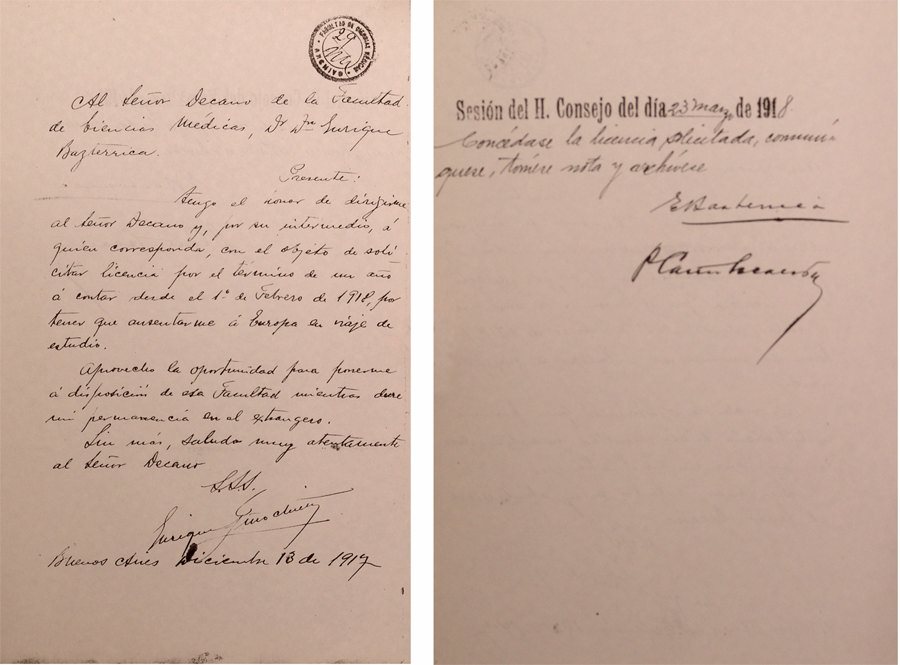 FACULTAD DE CIENCIAS MÉDICAS
29
Al Señor Decano de la Facultad
de Ciencias Médicas, Dr Dn Enrique
Bazterrica.
Presente:
Tengo el honor de dirigirme
al Señor Decano y, por su intermedio, á
quien corresponda, con el objeto de soli
citar licencia por el término de un año
á contar desde el 1º de Febrero de 1918, por
tener que ausentarme á Europa en viaje de
estudio.
Aprovecho la oportunidad para ponerme
á disposición de esa Facultad mientras dure
mi permanencia en el extrangero.
Sin más, saludo muy atentamente
al Señor Decano
S.S.S.
Enrique Finochietto
Buenos Aires Diciembre 13 de 1917
Sesión del H. Consejo del día 23 marzo de 1918
Concédase la licencia solicitada, comuní
quese, tómese nota y archívese
E Bazterrica